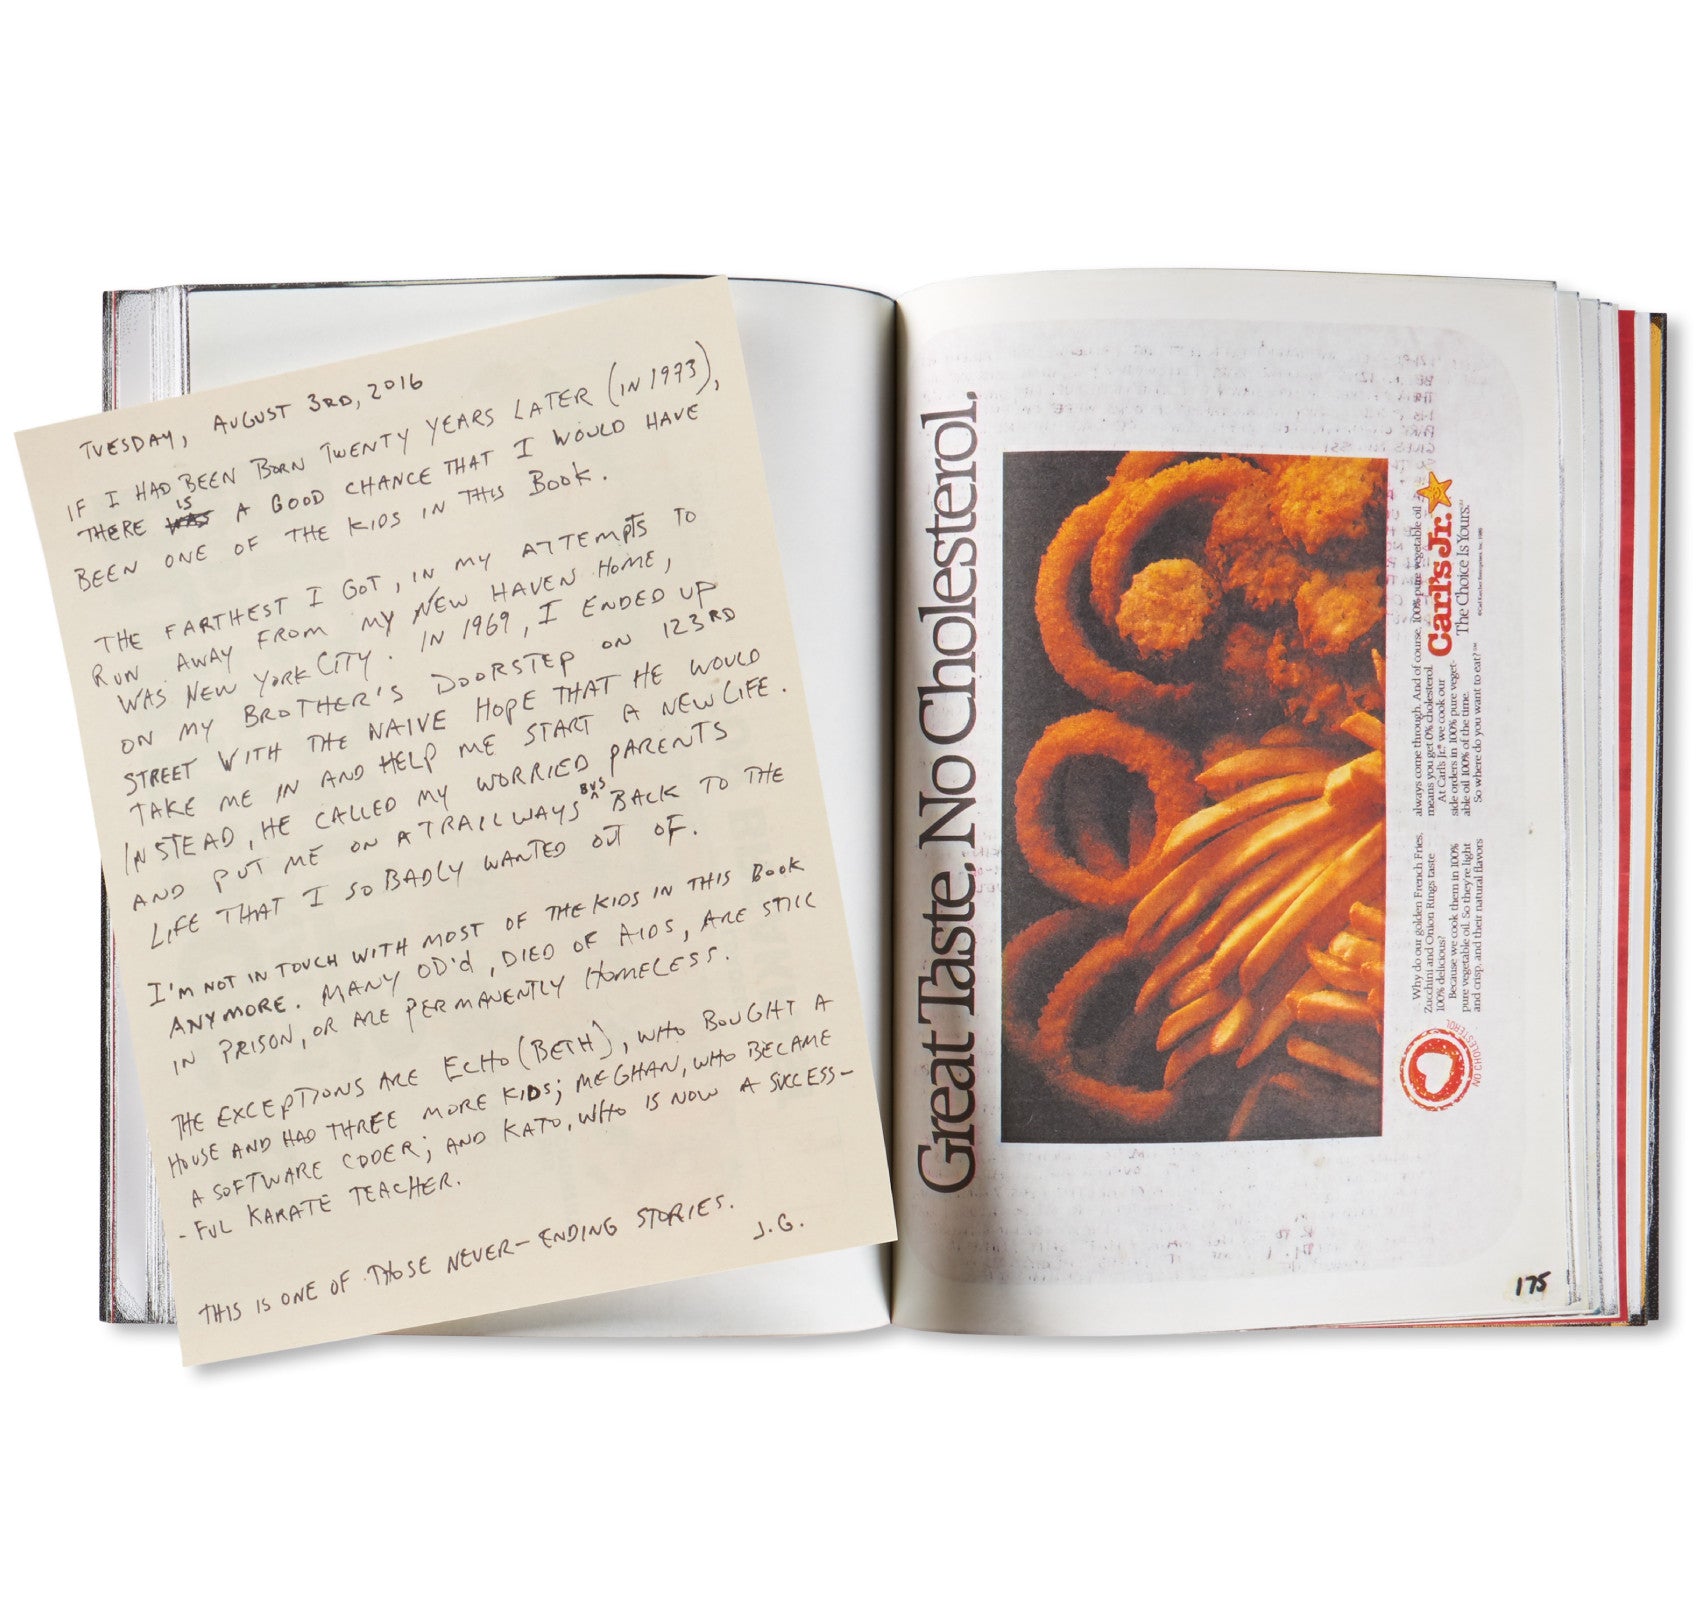 TUESDAY, AUGUST 3RD, 2016
IF I HAD BEEN BORN TWENTY YEARS LATER (IN 1973),
THERE IS A GOOD CHANCE THAT I WOULD HAVE
BEEN ONE OF THE KIDS IN THIS BOOK.
THE FARTHEST I GOT, IN MY ATTEMPTS TO
RUN AWAY FROM MY NEW HAVEN HOME,
WAS NEW YORK CITY. IN 1969, I ENDED UP
ON MY BROTHER'S DOORSTEP ON 123RD
STREET WITH THE NAIVE HOPE THAT HE WOULD
TAKE ME IN AND HELP ME START A NEW LIFE.
INSTEAD, HE CALLED MY WORRIED PARENTS
AND PUT ME ON A TRAILWAYS BUS BACK TO THE
LIFE THAT I SO BADLY WANTED OUT OF.
I'M NOT IN TOUCH WITH MOST OF THE KIDS IN THIS BOOK
ANYMORE. MANY OD'd, DIED OF AIDS, ARE STILL
IN PRISON, OR ARE PERMANENTLY HOMELESS.
THE EXCEPTIONS ARE ECHO (BETH), WHO BOUGHT A
HOUSE AND HAD THREE MORE KIDS; MEGHAN, WHO BECAME
A SOFTWARE CODER; AND KATO, WHO IS NOW A SUCCESS-
-FUL KARATE TEACHER.
THIS IS ONE OF THOSE NEVER-ENDING STORIES.
J.G.
Great Taste. No Cholesterol.
Why do our golden French Fries,
Zucchini and Onion Rings taste
100% delicious?
Because we cook them in 100%
pure vegetable oil. So they're light
and crisp, and their natural flavors
always come through. And of course, 100% pure vegetable oil
means you get 0% cholesterol.
At Carl's Jr.® we cook our
side orders in 100% pure veget-
able oil 100% of the time.
So where do you want to eat?™
Carl's Jr.
The Choice Is Yours.
NO CHOLESTEROL
175